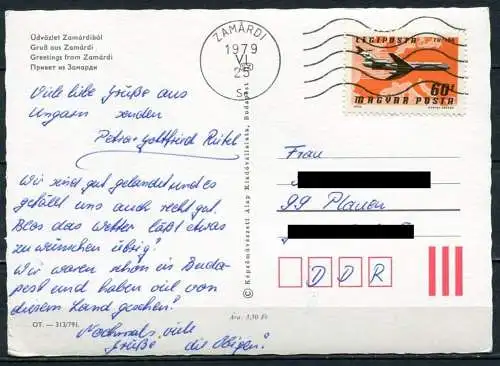 Üdvözlet Zamárdiból
Gruß aus Zamárdi
Greetings from Zamárdi
Привет из Замарди
ZAMÁRDI
1979
VI
25
LÉGIPOSTA
60f
MAGYAR POSTA
Viele liebe Grüße aus
Ungarn senden
Petra + Gottfried
Wir sind gut gelandet und es
gefällt uns auch recht gut.
Blos das Wetter läßt etwas
zu wünschen übrig!
Wir waren schon in Buda-
pest und haben viel von
diesem Land gesehen!
Nochmals viele
Grüße die Obigen!
Frau
99 Plauen
DDR
© Képzőművészeti Alap Kiadóvállalata, Budapest
Ára: 3,50 Ft
OT. — 313/791.